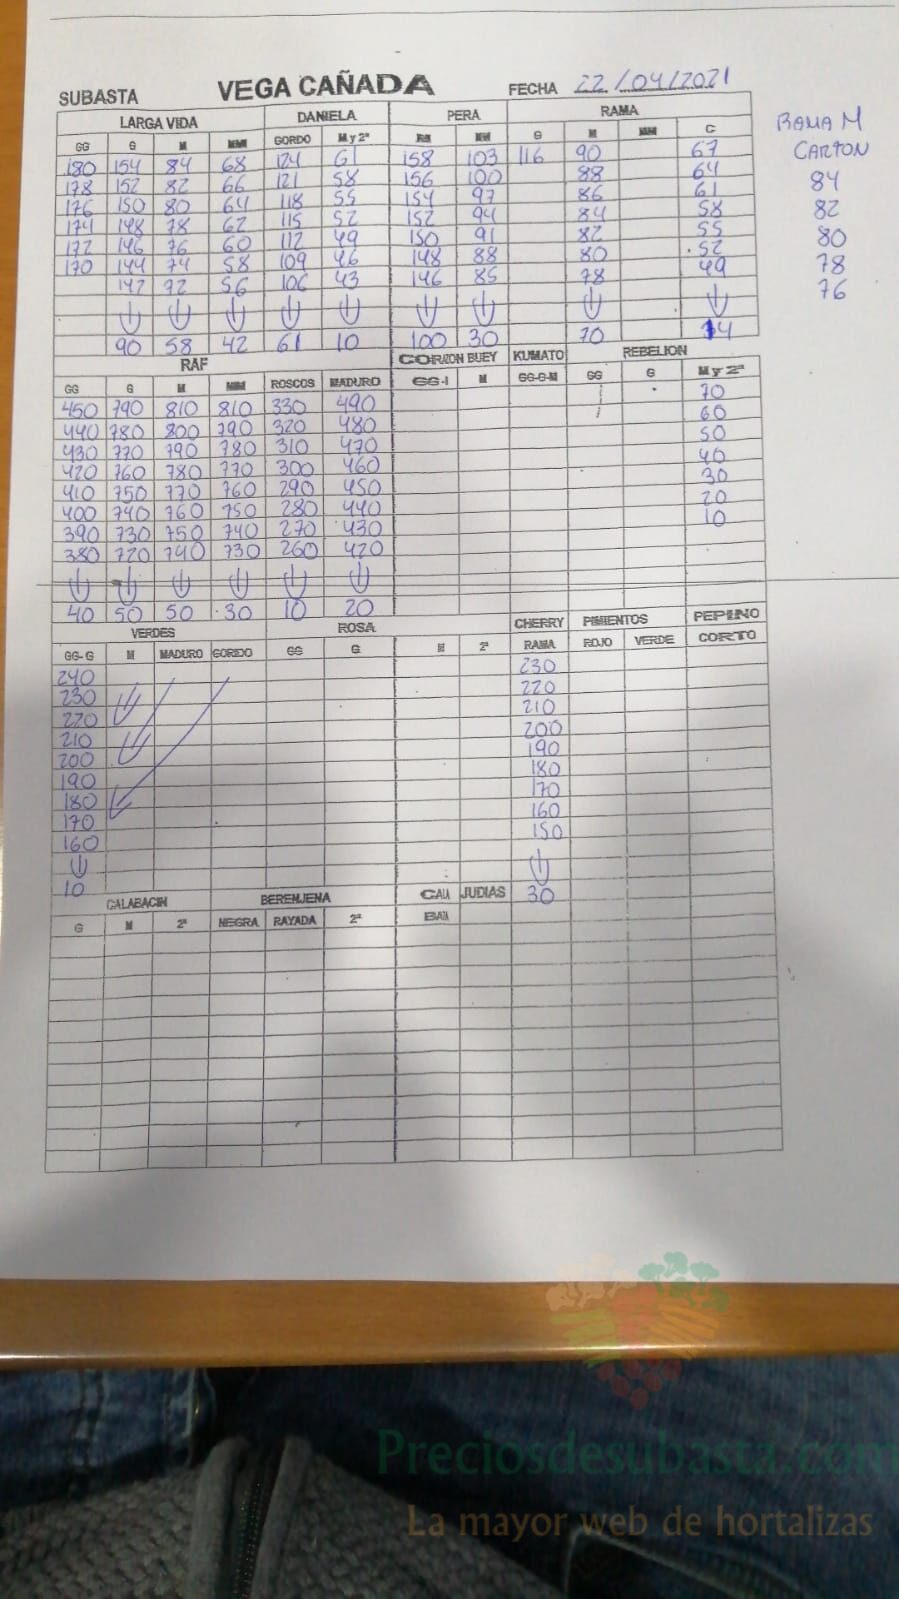 SUBASTA VEGA CAÑADA FECHA 22/04/2021
LARGA VIDA DANIELA PERA RAMA
GG G M MM GORDO M y 2ª G M MM C
180 154 84 68 124 61 158 103 116 90 67
178 152 82 66 121 58 156 100 88 64
176 150 80 64 118 55 154 97 86 61
174 148 78 62 115 52 152 94 84 58
172 146 76 60 112 49 150 91 82 55
170 144 74 58 109 46 148 88 80 52
142 72 56 106 43 146 85 78 49
90 58 42 61 10 100 30 70
RAMA M
CARTON
84
82
80
78
76
RAF CORAZON BUEY KUMATO REBELION
GG G M MM ROSCOS MADURO GG-I M GG-G-M GG G M y 2ª
450 790 810 810 330 490 70
440 780 800 790 320 480 60
430 770 790 780 310 470 50
420 760 780 770 300 460 40
410 750 770 760 290 450 30
400 740 760 750 280 440 20
390 730 750 740 270 430 10
380 720 740 730 260 420
40 50 50 30 10 20
VERDES ROSA CHERRY PIMIENTOS PEPINO
GG-G M MADURO GORDO GG G M 2ª RAMA ROJO VERDE CORTO
240 230
230 220
220 210
210 200
200 190
190 180
180 170
170 160
160 150
10 30
CALABACIN BERENJENA JUDIAS
G M 2ª NEGRA RAYADA 2ª
Preciosdesubasta.com
La mayor web de hortalizas